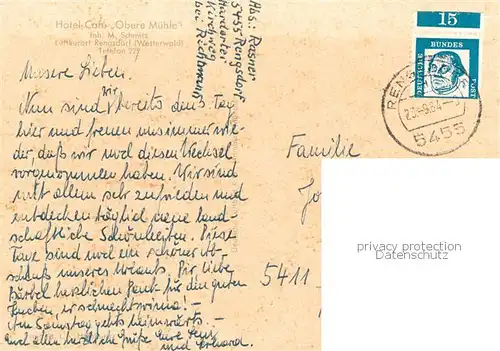 Hotel-Café „Obere Mühle"
Inh. M. Schmitz
Luftkurort Rengsdorf (Westerwald)
Telefon 229
Abs.: Rasner
5455 Rengsdorf
Hardert
bei
15
DEUTSCHE BUNDES POST
RENGSDORF
5455
Unsere Lieben.
Nun sind wir bereits den 3 Tag
hier und freuen uns immer wie-
der, daß wir noch diesen Wechsel
vorgenommen haben. Wir sind
mit allem sehr zufrieden und
entdecken täglich neue land-
schaftliche Schönheiten. Diese
Tage sind wohl ein schöner Ab-
schluß unseres Urlaubs. Dir liebe
Bärbel herzlichen Dank für den guten
Kuchen, er schmeckt prima! –
Am Samstag gehts heimwärts –
Euch allen herzliche Grüße Eure
und Erhard.
Familie
Jo
5411
privacy protection
Datenschutz